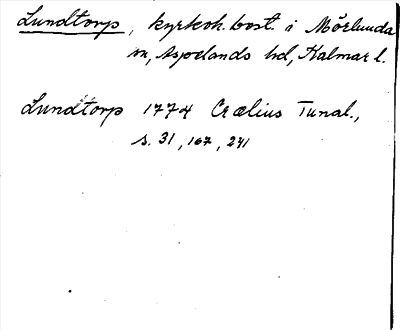 Lundtorp, kyrkoh. bost. i Mörlunda
sn, Aspelands hd, Kalmar l.
Lundtorp 1774 Crælius Tunal.,
s. 31, 167, 241